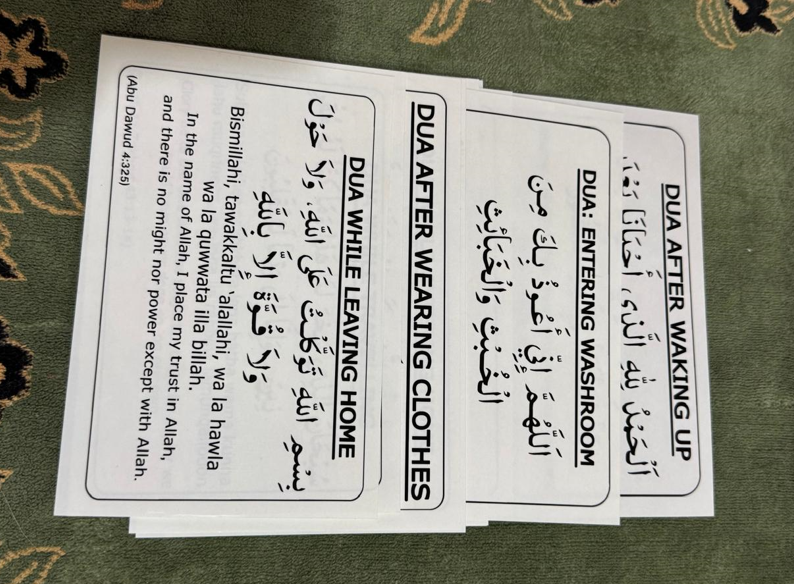 DUA AFTER WAKING UP
اَلْحَمْدُ لِلّٰهِ الَّذِى أَحْيَانَا بَعْدَ
DUA: ENTERING WASHROOM
اَللّٰهُمَّ إِنِّي أَعُوْذُ بِكَ مِنَ
الْخُبُثِ وَالْخَبَائِثِ
DUA AFTER WEARING CLOTHES
DUA WHILE LEAVING HOME
بِسْمِ اللّٰهِ تَوَكَّلْتُ عَلَى اللّٰهِ، وَلَا حَوْلَ
وَلَا قُوَّةَ إِلَّا بِاللّٰهِ
Bismillahi, tawakkaltu 'alallahi, wa la hawla
wa la quwwata illa billah.
In the name of Allah, I place my trust in Allah,
and there is no might nor power except with Allah.
(Abu Dawud 4:325)